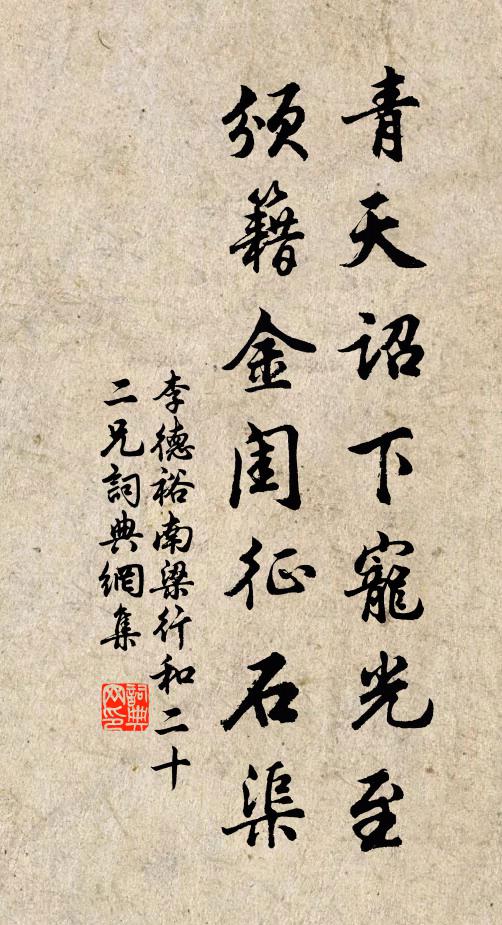 青天詔下寵光至
頒籍金閨征石渠
李德裕南梁行和二十
二兄詞典網集
詞典
网印